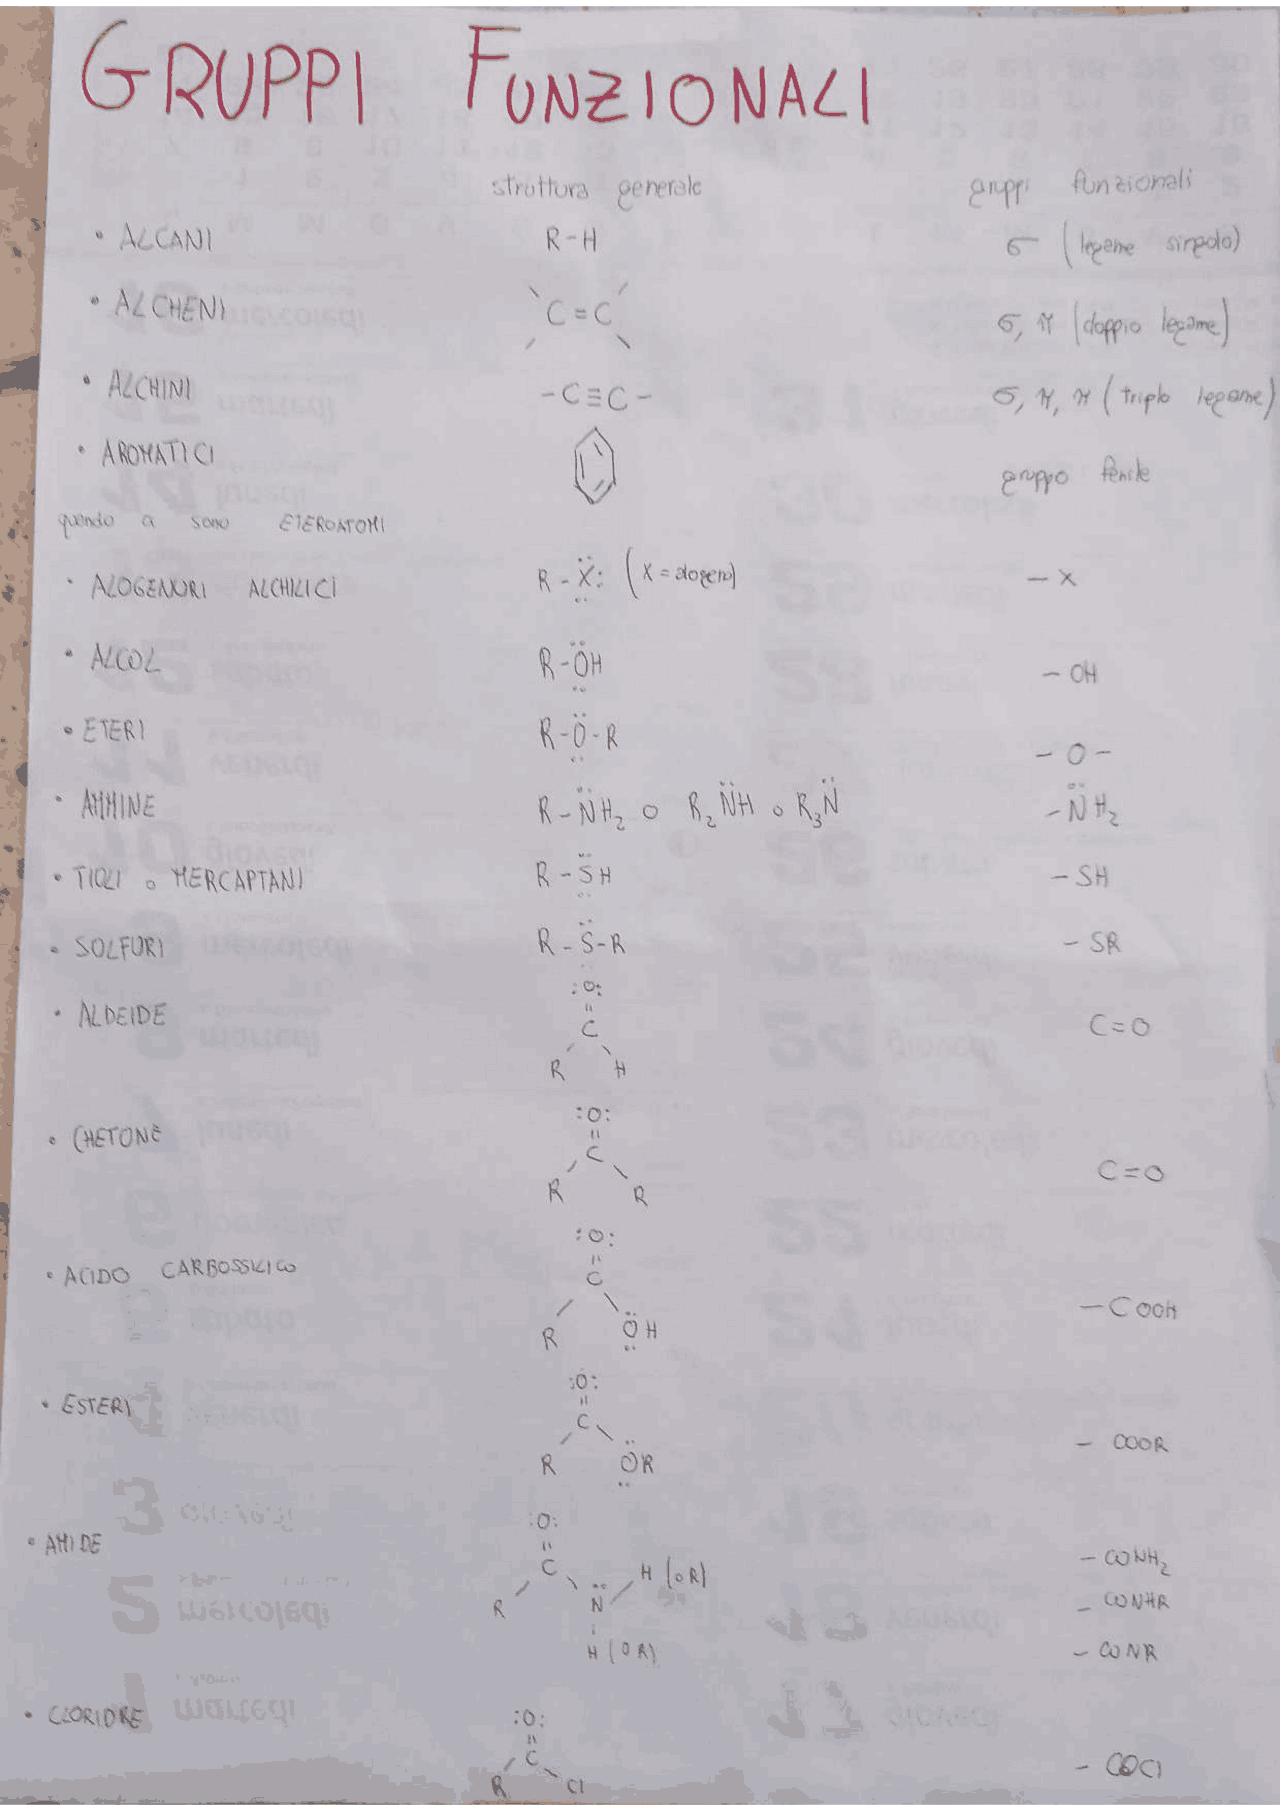 GRUPPI FUNZIONALI
struttura generale gruppi funzionali
• ALCANI R-H σ (legame singolo)
• ALCHENI C=C σ, π (doppio legame)
• ALCHINI -C≡C- σ, π, π (triplo legame)
• AROMATICI gruppo fenile
quando ci sono ETEROATOMI
• ALOGENURI ALCHILICI R-X: (X = alogeno) -X
• ALCOL R-ÖH -OH
• ETERI R-Ö-R -O-
• AMMINE R-N̈H₂ o R₂N̈H o R₃N̈ -N̈H₂
• TIOLI o MERCAPTANI R-S̈H -SH
• SOLFURI R-S̈-R -SR
:O:
• ALDEIDE C C=O
R H
:O:
• CHETONE C C=O
R R
:O:
• ACIDO CARBOSSILICO C -COOH
R ÖH
:O:
• ESTERI C -COOR
R ÖR
:O:
• AMIDE C H (o R) -CONH₂
R N̈ -CONHR
H (o R) -CONR
• CLORIDRE :O:
C -COCl
R Cl